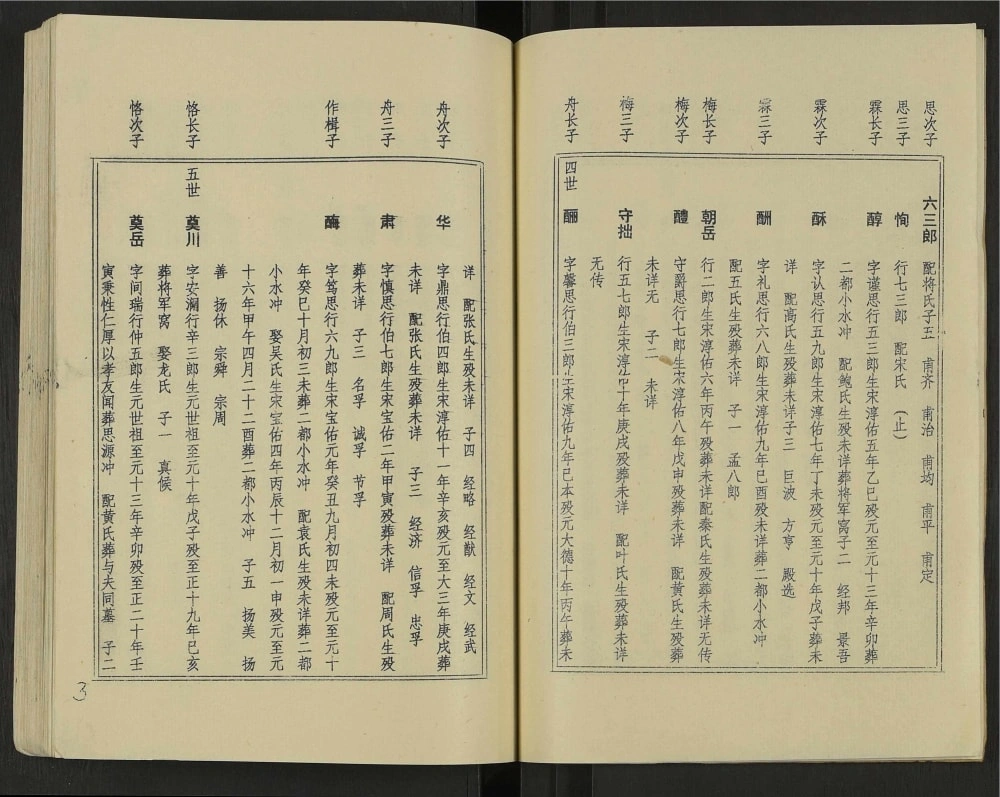 思次子 六三郎 配将氏子五 甫齐 甫治 甫均 甫平 甫定
思三子 恂 行七三郎 配宋氏 (止)
霖长子 醇 字谨思行五三郎生宋淳佑五年乙巳殁元至元十三年辛卯葬
二都小水冲 配鲍氏生殁未详葬将军窝子二 经邦 景吾
霖次子 酥 字认思行五九郎生宋淳佑七年丁未殁元至元十年戊子葬未
详 配高氏生殁葬未详子三 巨波 方亨 殿选
霖三子 酬 字礼思行六八郎生宋淳佑九年巳酉殁未详葬二都小水冲
配五氏生殁未详 子一 孟八郎
梅长子 朝岳 行二郎生宋淳佑六年丙午殁葬未详配泰氏生殁葬未详无传
梅次子 醴 守爵思行七郎生宋淳佑八年戊申殁葬未详 配黄氏生殁葬
未详无 子二 未详
梅三子 守拙 行五七郎生宋淳佑十年庚戌殁葬未详 配叶氏生殁葬未详
无传
四世
舟长子 酾 字馨思行伯三郎生宋淳佑九年巳本殁元大德十年丙午葬未
详 配张氏生殁未详 子四 经略 经猷 经文 经武
舟次子 华 字鼎思行伯四郎生宋淳佑十一年辛亥殁元至大三年庚戌葬
未详 配张氏生殁葬未详 子三 经济 信孚 忠孚
舟三子 肃 字慎思行伯七郎生宋宝佑二年甲寅殁葬未详 配周氏生殁
葬未详 子三 名孚 诚孚 节孚
作楫子 酶 字笃思行六九郎生宋宝佑元年癸丑九月初四未殁元至元十
年癸巳十月初三未葬二都小水冲 配袁氏生殁未详葬二都
小水冲 娶吴氏生宋宝佑四年丙辰十二月初一申殁元至元
十六年甲午四月二十二酉葬二都小水冲 子五 扬美 扬
善 扬休 宗舜 宗周
五世
恪长子 奠川 字安澜行辛三郎生元世祖至元十年戊子殁至正十九年巳亥
葬将军窝 娶龙氏 子一 真候
恪次子 奠岳 字间瑞行仲五郎生元世祖至元十三年辛卯殁至正二十年壬
寅秉性仁厚以孝友闻葬思源冲 配黄氏葬与夫同墓 子二
3